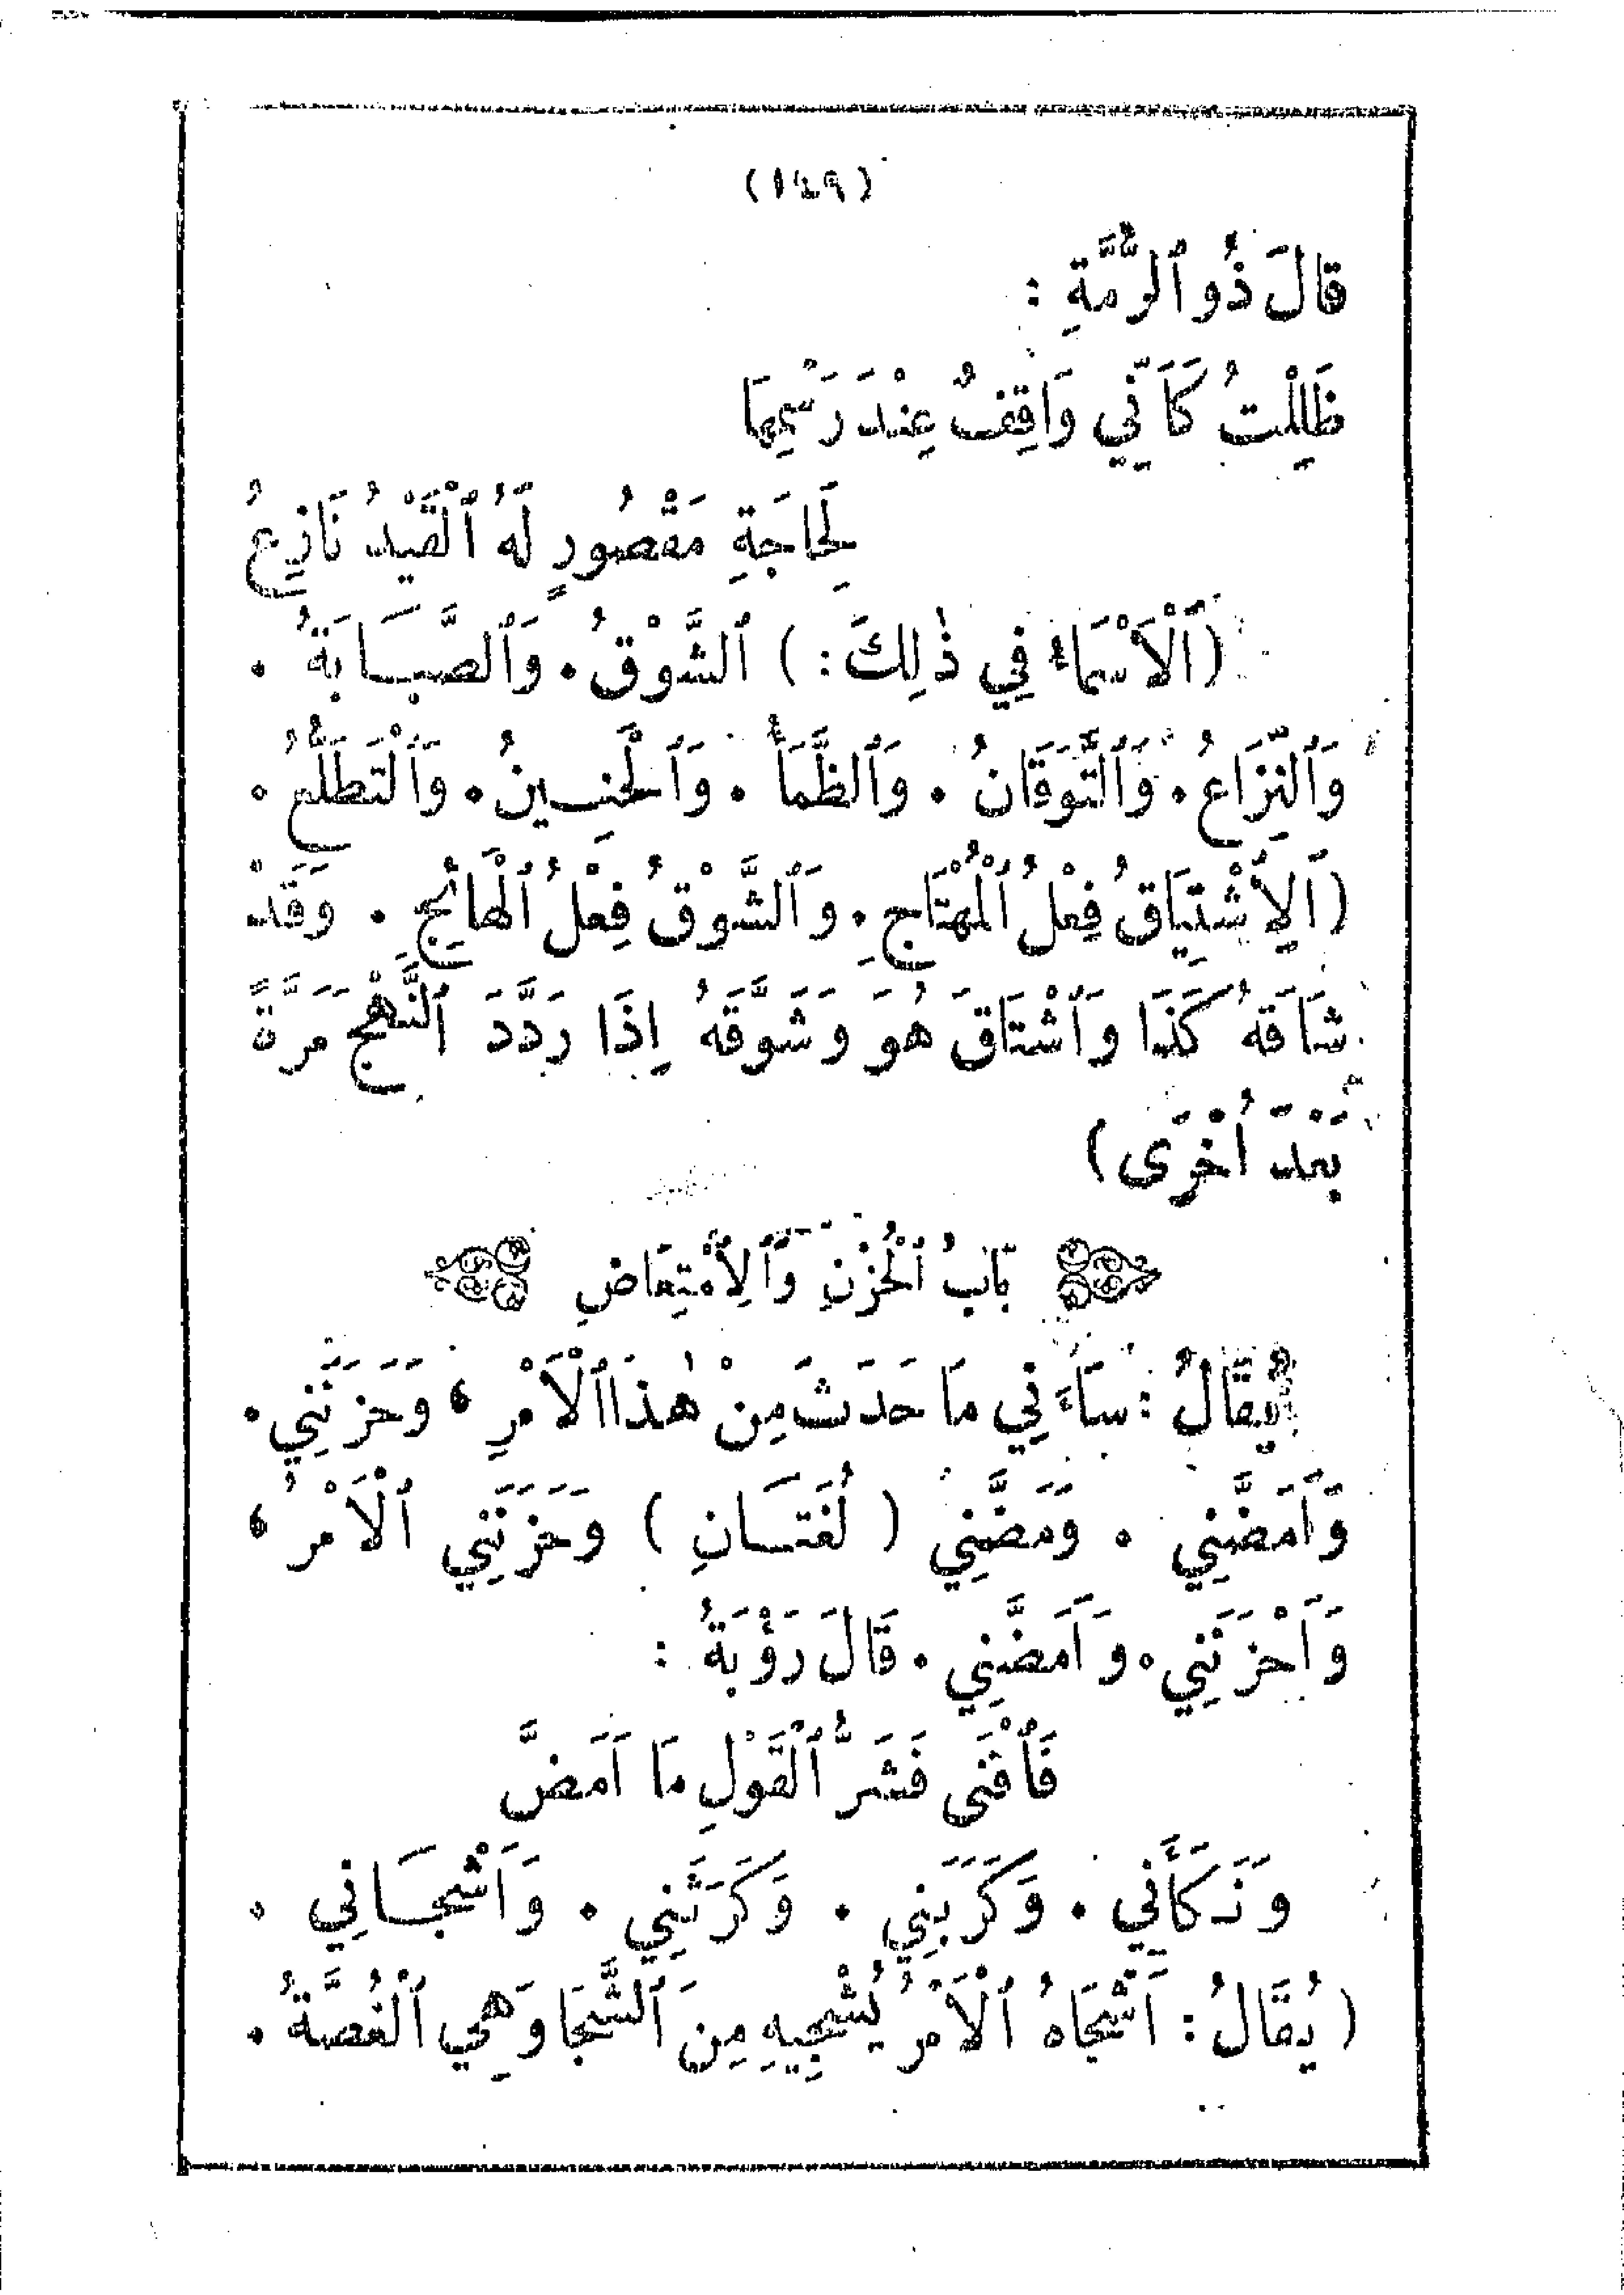 (١٤٩)
قَالَ ذُو ٱلرُّمَّةِ :
ظَلِلْتُ كَاَنِّي وَاقِفٌ عِنْدَ رَسْمِهَا
لِحَاجَةِ مَقْصُورٍ لَهُ ٱلْقَيْدُ نَازِعُ
(اَلْاَسْمَاءُ فِي ذٰلِكَ : ) ٱلشَّوْقُ . وَٱلصَّبَابَةُ .
وَٱلنِّزَاعُ . وَٱلتَّوَقَانُ . وَٱلظَّمَأُ . وَٱلْحَنِينُ . وَٱلْتَطَلُّعُ .
(اَلِاُشْتِيَاقُ فِعْلُ ٱلْمُهْتَاجِ . وَٱلشَّوْقُ فِعْلُ ٱلْهَائِجِ . وَقَدْ
شَاقَهُ كَذَا وَٱشْتَاقَ هُوَ وَشَوَّقَهُ اِذَا رَدَّدَ ٱلنَّهْجَ مَرَّةً
بَعْدَ اُخْرَى)
بَابُ ٱلْحُزْنِ وَٱلِاُمْتِعَاضِ
يُقَالُ : سَاءَنِي مَا حَدَثَ مِنْ هٰذَا ٱلْاَمْرِ ، وَحَزَنَنِي .
وَاَمَضَّنِي . وَمَضَّنِي ( لُغَتَانِ ) وَحَزَنَنِي ٱلْاَمْرُ ،
وَاَحْزَنَنِي . وَاَمَضَّنِي . قَالَ رُؤْبَةُ :
فَٱقْنَى فَشَرُّ ٱلْقَوْلِ مَا اَمَضَّ
وَنَكَأَنِي . وَكَرَبَنِي . وَكَرَثَنِي . وَاَشْجَانِي .
( يُقَالُ : اَشْجَاهُ ٱلْاَمْرُ يُشْجِيهِ مِنَ ٱلشَّجَا وَهِيَ ٱلْغُصَّةُ .